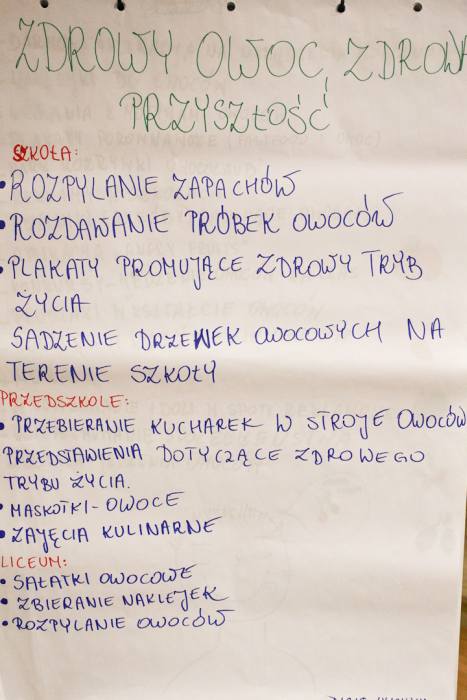 ZDROWY OWOC, ZDROWA
PRZYSZŁOŚĆ
SZKOŁA:
• ROZPYLANIE ZAPACHÓW
• ROZDAWANIE PRÓBEK OWOCÓW
• PLAKATY PROMUJĄCE ZDROWY TRYB
ŻYCIA
SADZENIE DRZEWEK OWOCOWYCH NA
TERENIE SZKOŁY
PRZEDSZKOLE:
• PRZEBIERANIE KUCHAREK W STROJE OWOCÓW
PRZEDSTAWIENIA DOTYCZĄCE ZDROWEGO
TRYBU ŻYCIA.
• MASKOTKI - OWOCE
• ZAJĘCIA KULINARNE
LICEUM:
• SAŁATKI OWOCOWE
• ZBIERANIE NAKLEJEK
• ROZPYLANIE OWOCÓW